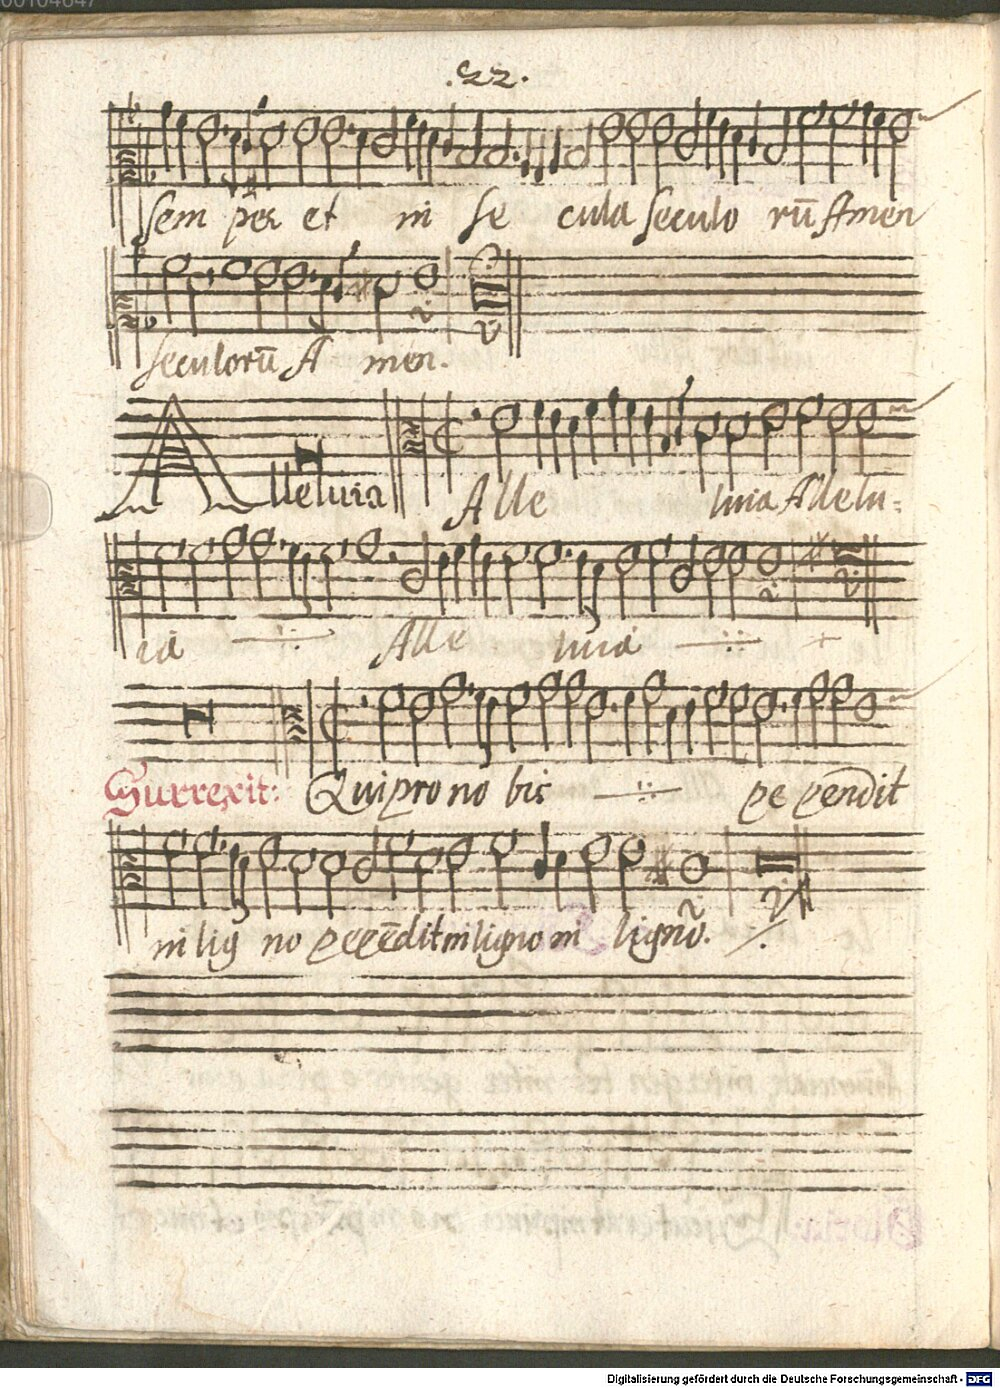 .22.
Sem per et in se cula seculo rū Amen
seculorū A men.
Alleluia Alle luia Allelu:
ia Alle luia
Surrexit: Qui pro no bis pe pendit
in lig no pepēdit in ligno in ligno.
Digitalisierung gefördert durch die Deutsche Forschungsgemeinschaft - DFG